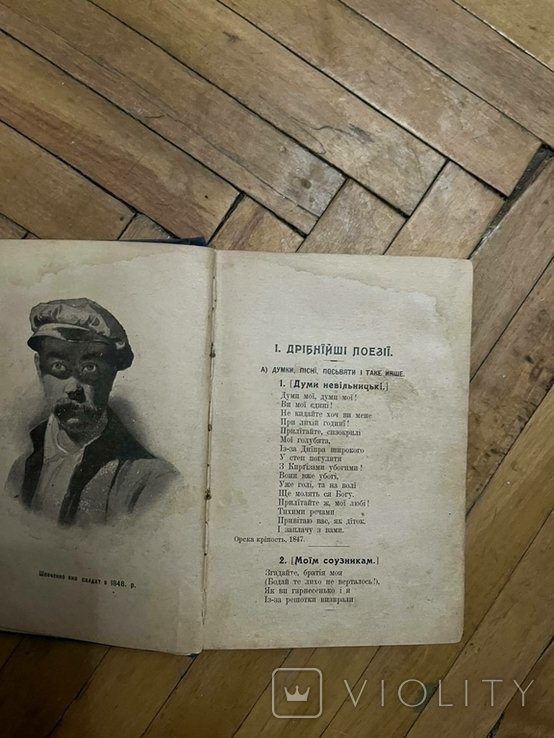 Шевченко яко солдат в 1848. р.
І. ДРІБНЇЙШІ ПОЕЗІЇ.
А) ДУМКИ, ПІСНІ, ПОСЬВЯТИ І ТАКЕ ИНШЕ.
1. [Думи невільницькі.]
Думи мої, думи мої!
Ви мої єдині!
Не кидайте хоч ви мене
При лихій годині!
Прилїтайте, сизокрилі
Мої голубята,
Із-за Днїпра широкого
У степ погуляти
З Кирґізами убогими!
Вони вже убогі,
Уже голі, та на волї
Ще молять ся Богу.
Прилїтайте ж, мої любі!
Тихими речами
Привітаю вас, як дїток.
І заплачу з вами.
Орска кріпость, 1847.
2. [Моїм соузникам.]
Згадайте, братія моя
(Бодай те лихо не верталось!),
Як ви гарнесенько і я
Із-за решотки визирали
VIOLITY